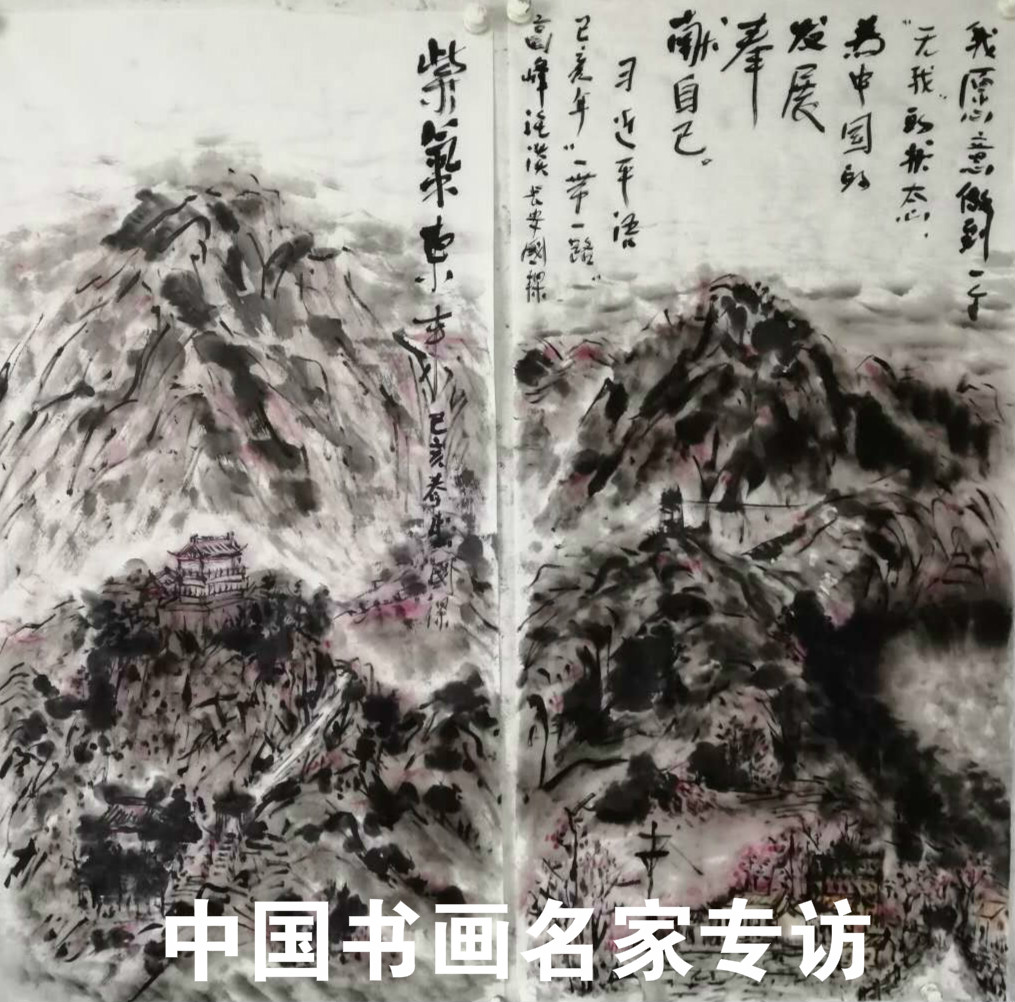 我愿意做到一个
“无我”的状态，
为中国的
发展
奉
献自己。
习近平语
己亥年“一带一路”
高峰论坛 长安國樑
紫氣東来
己亥春生國樑
中国书画名家专访